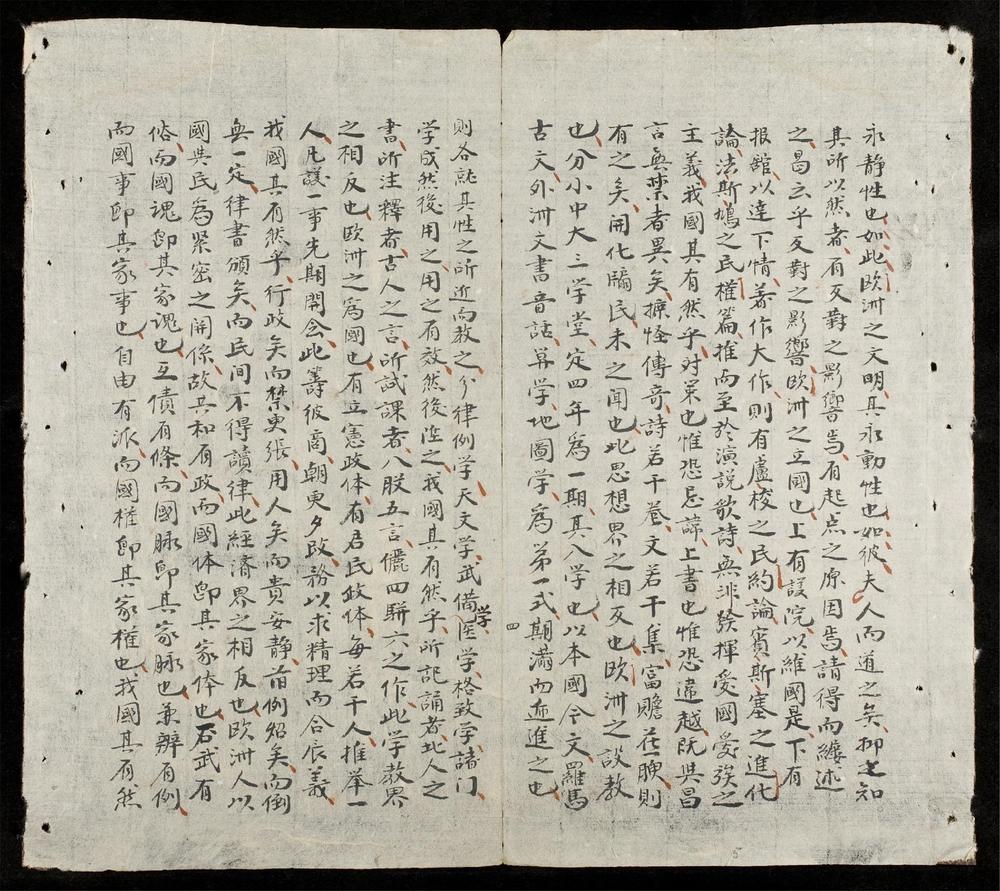 永静性也如此欧洲之文明具永動性也如彼夫人而道之矣抑之知
其所以然者有反對之影響焉有起点之原因焉請得而縷述
之曷云乎反對之影響欧洲之立國也上有議院以維國是下有
报舘以達下情著作大作則有盧梭之民約論賓斯塞之進化
論法斯鳩之民權篇推而至於演説歌詩無非發揮愛國愛族之
主義我國其有然乎对策也惟恐忌諱上書也惟恐違越既與昌
言無禁者異矣摭怪傳奇詩若干卷文若干集富贍花腴則
有之矣開化牖民未之聞也此思想界之相反也欧洲之設教
也分小中大三学堂定四年為一期其入学也以本國今文羅馬
古文外洲文書音話算学地圖学為第一式期滿而逓進之也
四
則各就其性之所近而教之分律例学天文学武備学医学格致学諸门
学成然後用之用之有效然後陞之我國其有然乎所記誦者北人之
書所注釋者古人之言所試課者八股五言儷四駢六之作此学教界
之相反也欧洲之為國也有立憲政体有君民政体每若干人推举一
人凡議一事先期開会此籌彼商朝更夕改務以求精理而合辰義
我國其有然乎行政矣而禁更张用人矣而貴安静首例紹矣而倒
無一定律書頒矣而民间不得讀律此經済界之相反也欧洲人以
國與民為緊密之関係故其和有政而國体即其家体也石武有
俗而國魂即其家魂也互債有條而國脉即其家脉也兼辨有例
而國事即其家事也自由有派而國權即其家權也我國其有然